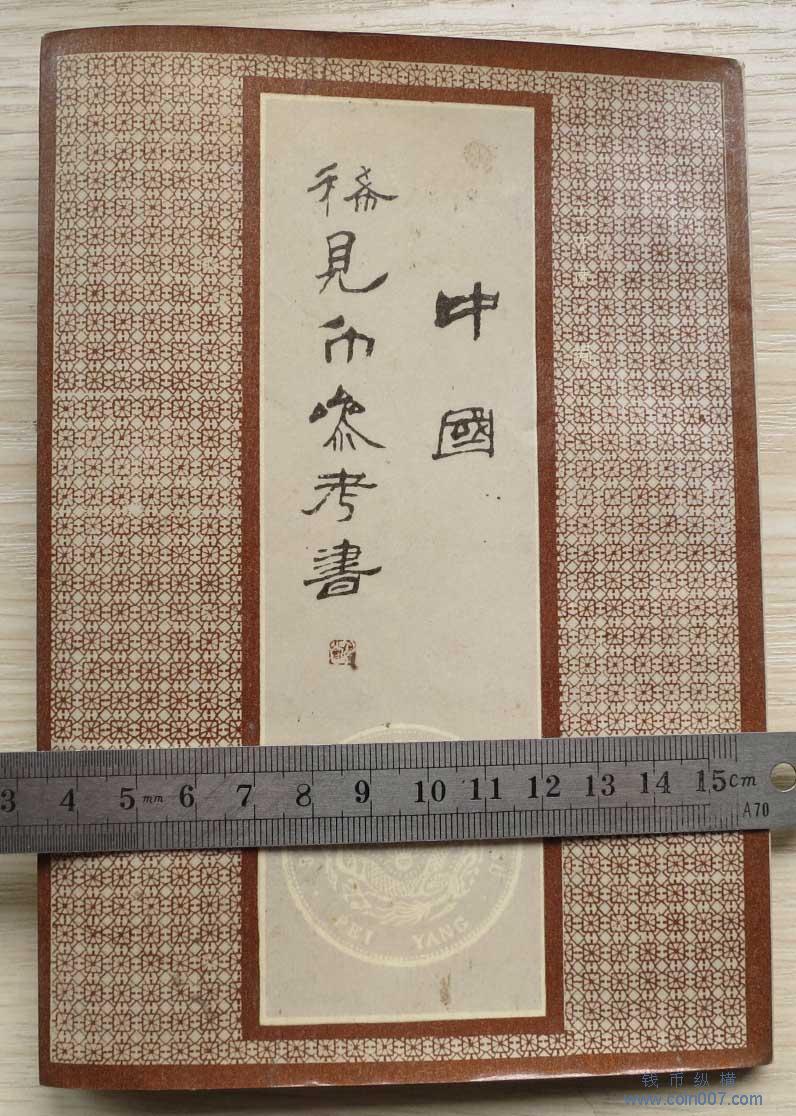 中國
稀見币參考書
3 4 5 mm 6 7 8 9 10 11 12 13 14 15 cm
A70
PEI YANG
钱币纵横
www.coin007.com